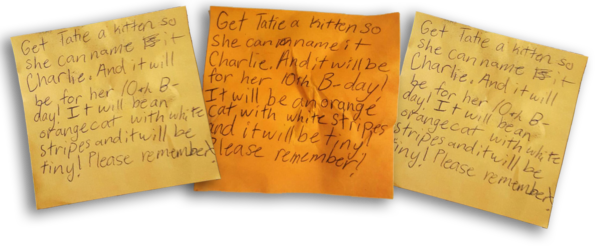 Get Tatie a kitten so
she can name it
Charlie. And it will
be for her 10th B-
day! It will be an
orange cat with white
stripes and it will be
tiny! Please remember!
Get Tatie a kitten so
she can name it
Charlie. And it will be
for her 10th B-day!
It will be an orange
cat with white stripes
and it will be tiny!
Please remember!
Get Tatie a kitten so
she can name it
Charlie. And it will
be for her 10th B-
day! It will be an
orange cat with white
stripes and it will be
tiny! Please remember!